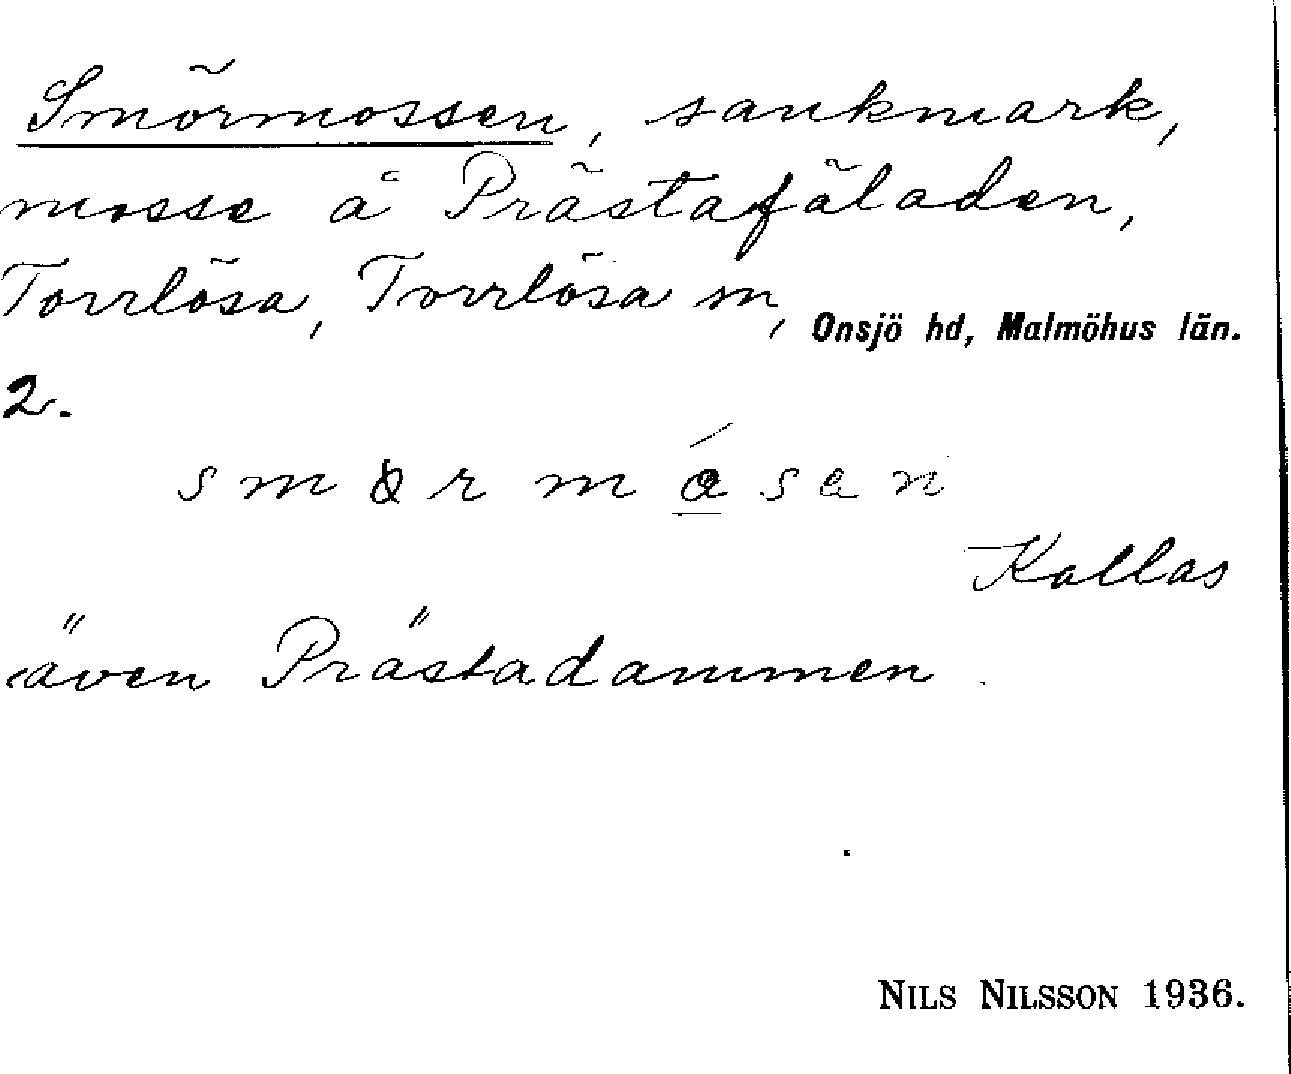 Smörmossen, sankmark,
mosse å Prästafäladen,
Torrlösa, Torrlösa sn, Onsjö hd, Malmöhus län.
2.
Kallas
även Prästadammen.
NILS NILSSON 1936.